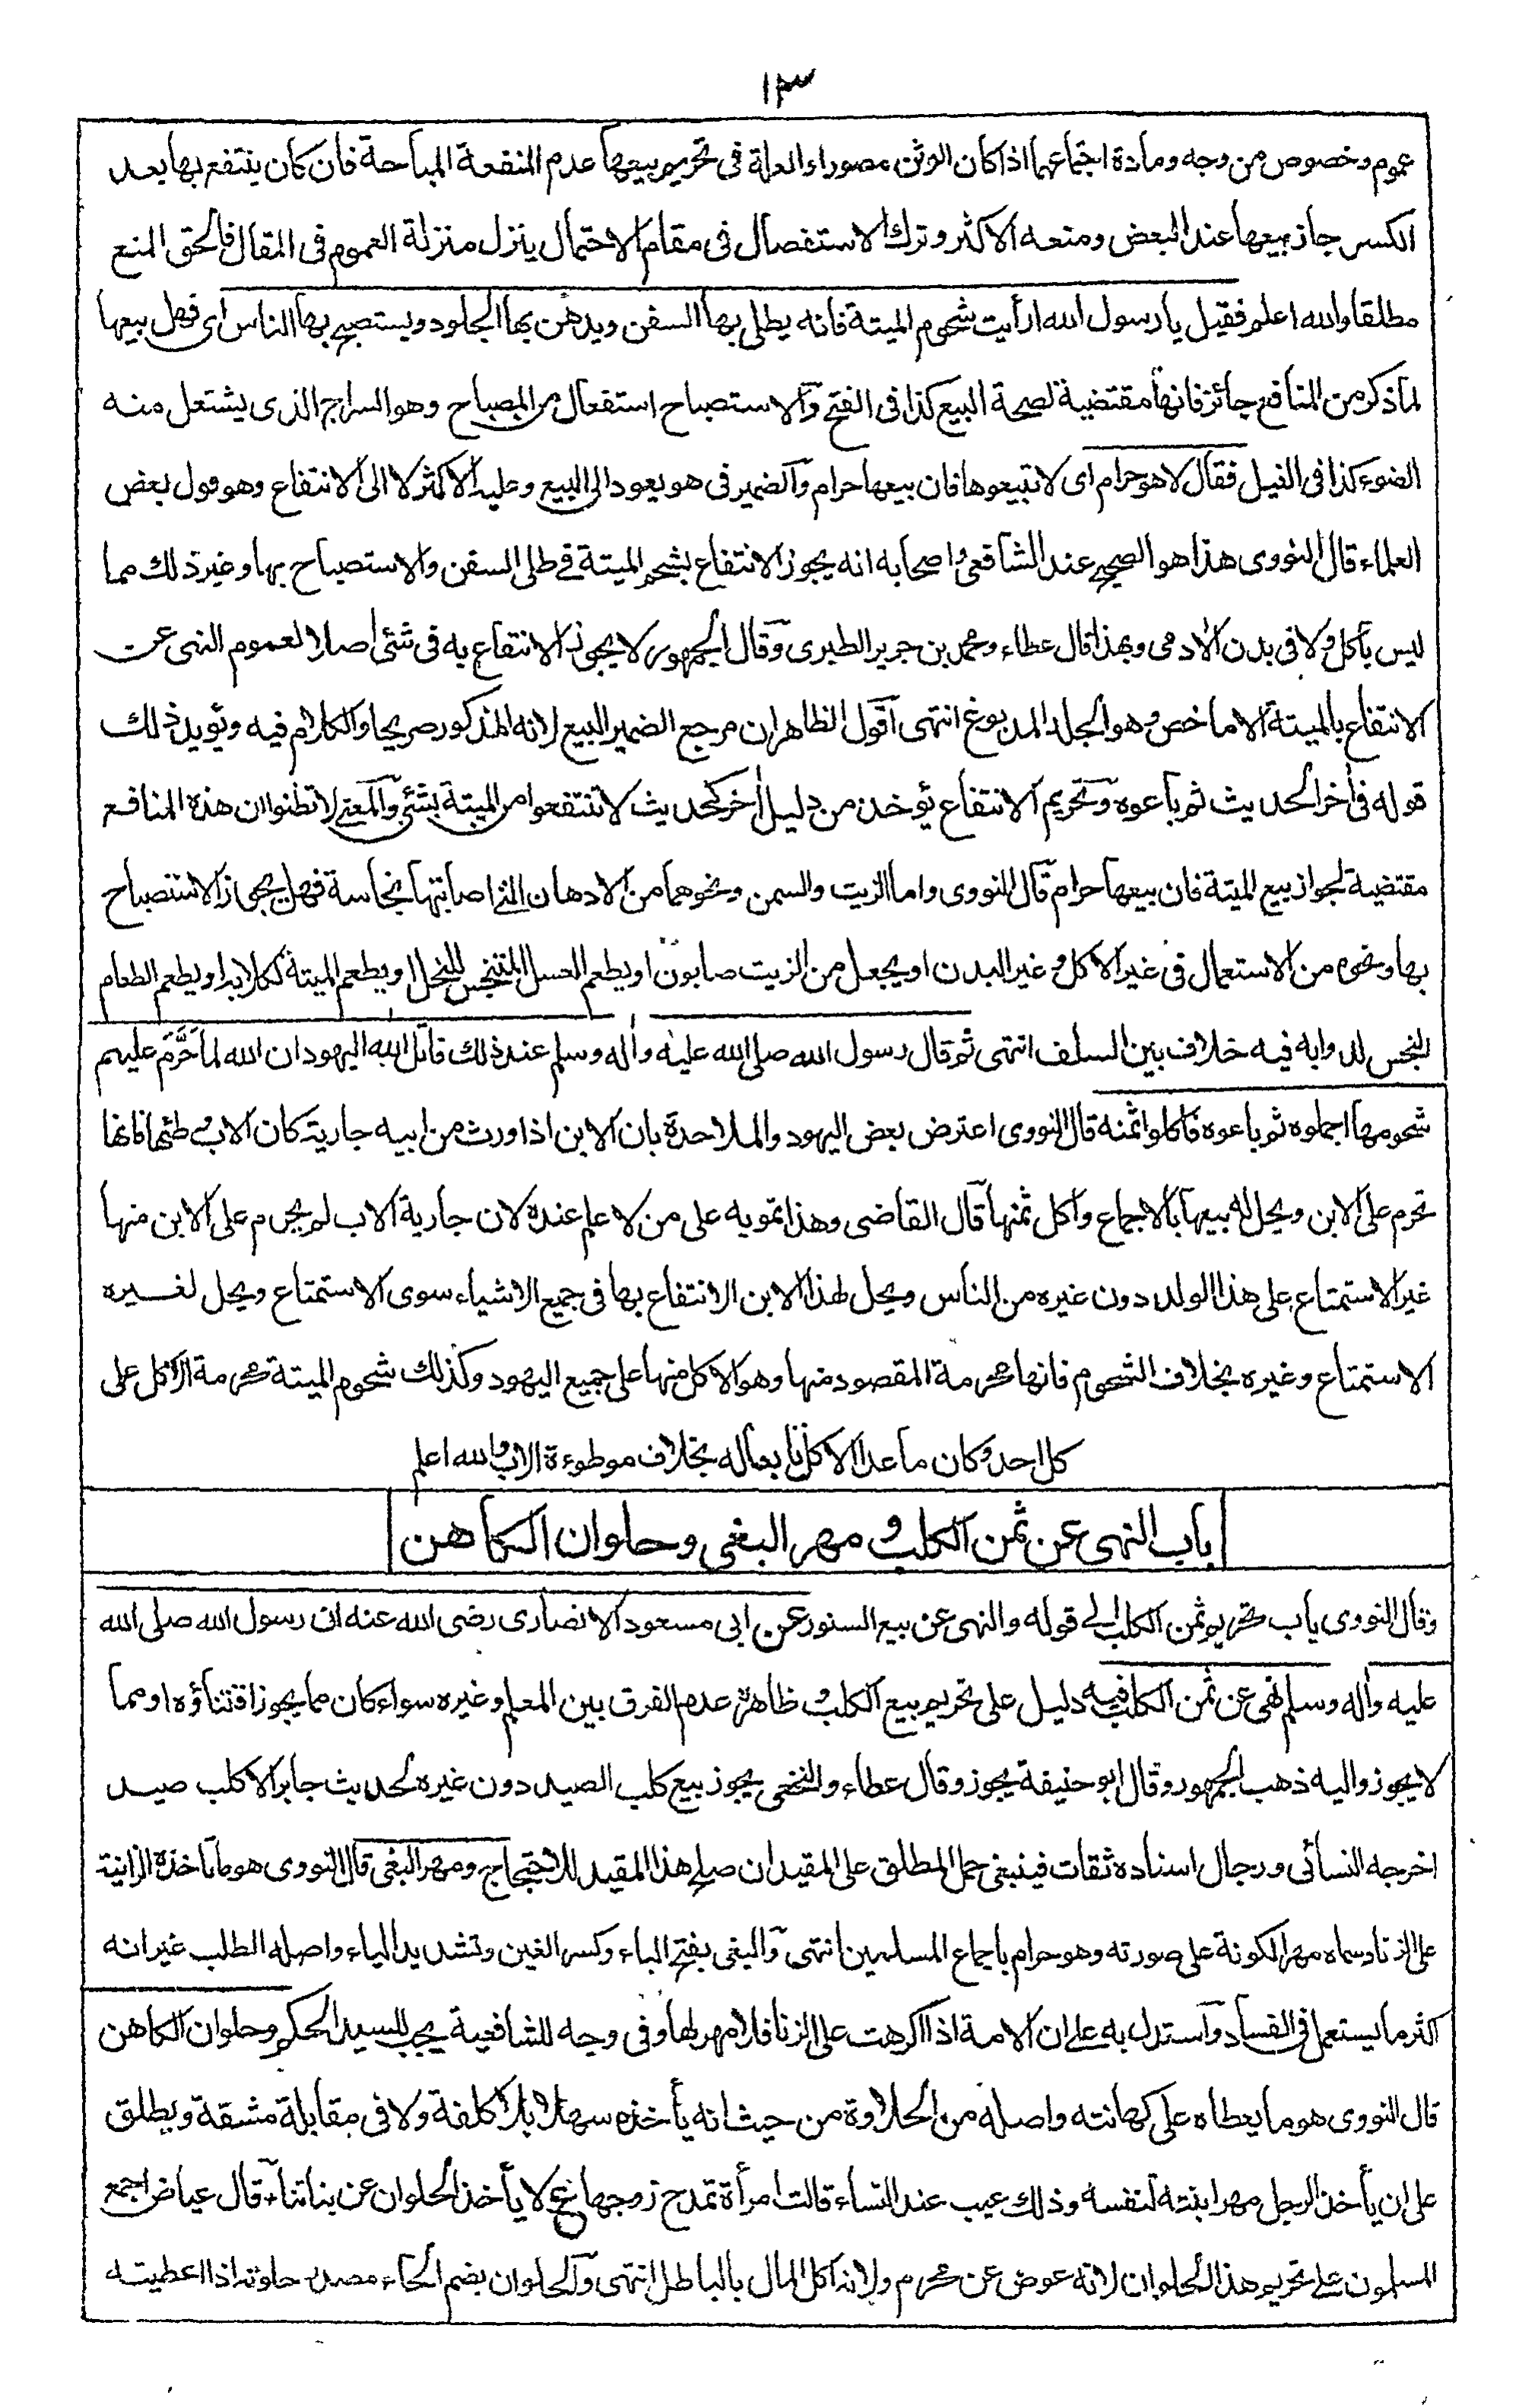 ١٣
عموم وخصوص من وجه ومادة اجتماعهما اذا كان الوثن مصورا والعلة فى تحريم بيعها عدم المنفعة المباحة فان كان ينتفع بها بعد
الكسر جاز بيعها عند البعض ومنعه الاكثر وترك الاستفصال فى مقام الاحتمال ينزل منزلة العموم فى المقال فالحق المنع
مطلقا والله اعلم فقيل يا رسول الله ارأيت شحوم الميتة فانه يطلى بها السفن ويدهن بها الجلود ويستصبح بها الناس اى فهل بيعها
لما ذكر من المنافع جائز فانها مقتضية لصحة البيع كذا فى الفتح والاستصباح استفعال من المصباح وهو السراج الذى يشتعل منه
الضوء كذا فى النيل فقال لا هو حرام اى لا تبيعوها فان بيعها حرام والضمير فى هو يعود الى البيع وعليه الاكثر لا الى الانتفاع وهو قول بعض
العلماء قال النووى هذا هو الصحيح عند الشافعى واصحابه انه يجوز الانتفاع بشحم الميتة فى طلى السفن والاستصباح بها وغير ذلك مما
ليس بأكل ولا فى بدن الآدمى وبهذا قال عطاء ومحمد بن جرير الطبرى وقال الجمهور لا يجوز الانتفاع به فى شئ اصلا لعموم النهى عن
الانتفاع بالميتة الا ما خص وهو الجلد المدبوغ انتهى اقول الظاهر ان مرجع الضمير البيع لانه المذكور صريحا والكلام فيه ويؤيد ذلك
قوله فى أخر الحديث ثم باعوه وتحريم الانتفاع يؤخذ من دليل أخر كحديث لا تنتفعوا من الميتة بشئ والمعنى لا تظنوا ان هذه المنافع
مقتضية لجواز بيع الميتة فان بيعها حرام قال النووى واما الزيت والسمن ونحوهما من الادهان التى اصابتها نجاسة فهل يجوز الاستصباح
بها ونحوه من الاستعمال فى غير الاكل وغير البدن او يجعل من الزيت صابون او يطعم العسل المتنجس للنحل او يطعم الميتة لكلابه او يطعم الطعام
النجس لدوابه فيه خلاف بين السلف انتهى ثم قال رسول الله صلى الله عليه وأله وسلم عند ذلك قاتل الله اليهود ان الله لما حَرَّمَ عليهم
شحومها اجملوه ثم باعوه فاكلوا ثمنه قال النووى اعترض بعض اليهود والملاحدة بان الابن اذا ورث من ابيه جارية كان الاب وطئها فانها
تحرم على الابن ويحل له بيعها بالاجماع وأكل ثمنها قال القاضى وهذا تمويه على من لا علم عنده لان جارية الاب لم يحرم على الابن منها
غير الاستمتاع على هذا الولد دون غيره من الناس ويحل لهذا الابن الانتفاع بها فى جميع الاشياء سوى الاستمتاع ويحل لغيره
الاستمتاع وغيره بخلاف الشحوم فانها محرمة المقصود منها وهو الاكل منها على جميع اليهود وكذلك شحوم الميتة محرمة الاكل على
كل احد وكان ما عدا الاكل تابعا له بخلاف موطوءة الاب والله اعلم
باب النهى عن ثمن الكلب و مهر البغى وحلوان الكاهن
وقال النووى باب تحريم ثمن الكلب الى قوله والنهى عن بيع السنور عن ابى مسعود الانصارى رضى الله عنه ان رسول الله صلى الله
عليه وأله وسلم نهى عن ثمن الكلب فيه دليل على تحريم بيع الكلب و ظاهره عدم الفرق بين المعلم وغيره سواء كان مما يجوز اقتناؤه او مما
لا يجوز واليه ذهب الجمهور وقال ابو حنيفة يجوز وقال عطاء والنخعى يجوز بيع كلب الصيد دون غيره لحديث جابر الا كلب صيد
اخرجه النسائى ورجال اسناده ثقات فينبغى حمل المطلق على المقيد ان صلح هذا المقيد للاحتجاج ومهر البغى قال النووى هو ما تأخذه الزانية
على الزنا وسماه مهرا لكونه على صورته وهو حرام باجماع المسلمين انتهى والبغى بفتح الباء وكسر الغين وتشديد الياء واصله الطلب غير انه
اكثر ما يستعمل فى الفساد واستدل به على ان الامة اذا اكرهت على الزنا فلا مهر لها وفى وجه للشافعية يجب للسيد الحكم وحلوان الكاهن
قال النووى هو ما يعطاه على كهانته واصله من الحلاوة من حيث انه يأخذه سهلا بلا كلفة ولا فى مقابلة مشقة ويطلق
على ان يأخذ الرجل مهر ابنته لنفسه وذلك عيب عند النساء قالت امرأة تمدح زوجها ع لا يأخذ الحلوان عن بناتنا، قال عياض اجمع
المسلمون على تحريم هذا الحلوان لانه عوض عن محرم ولانه اكل المال بالباطل انتهى والحلوان بضم الحاء مصدر حلوته اذا اعطيته